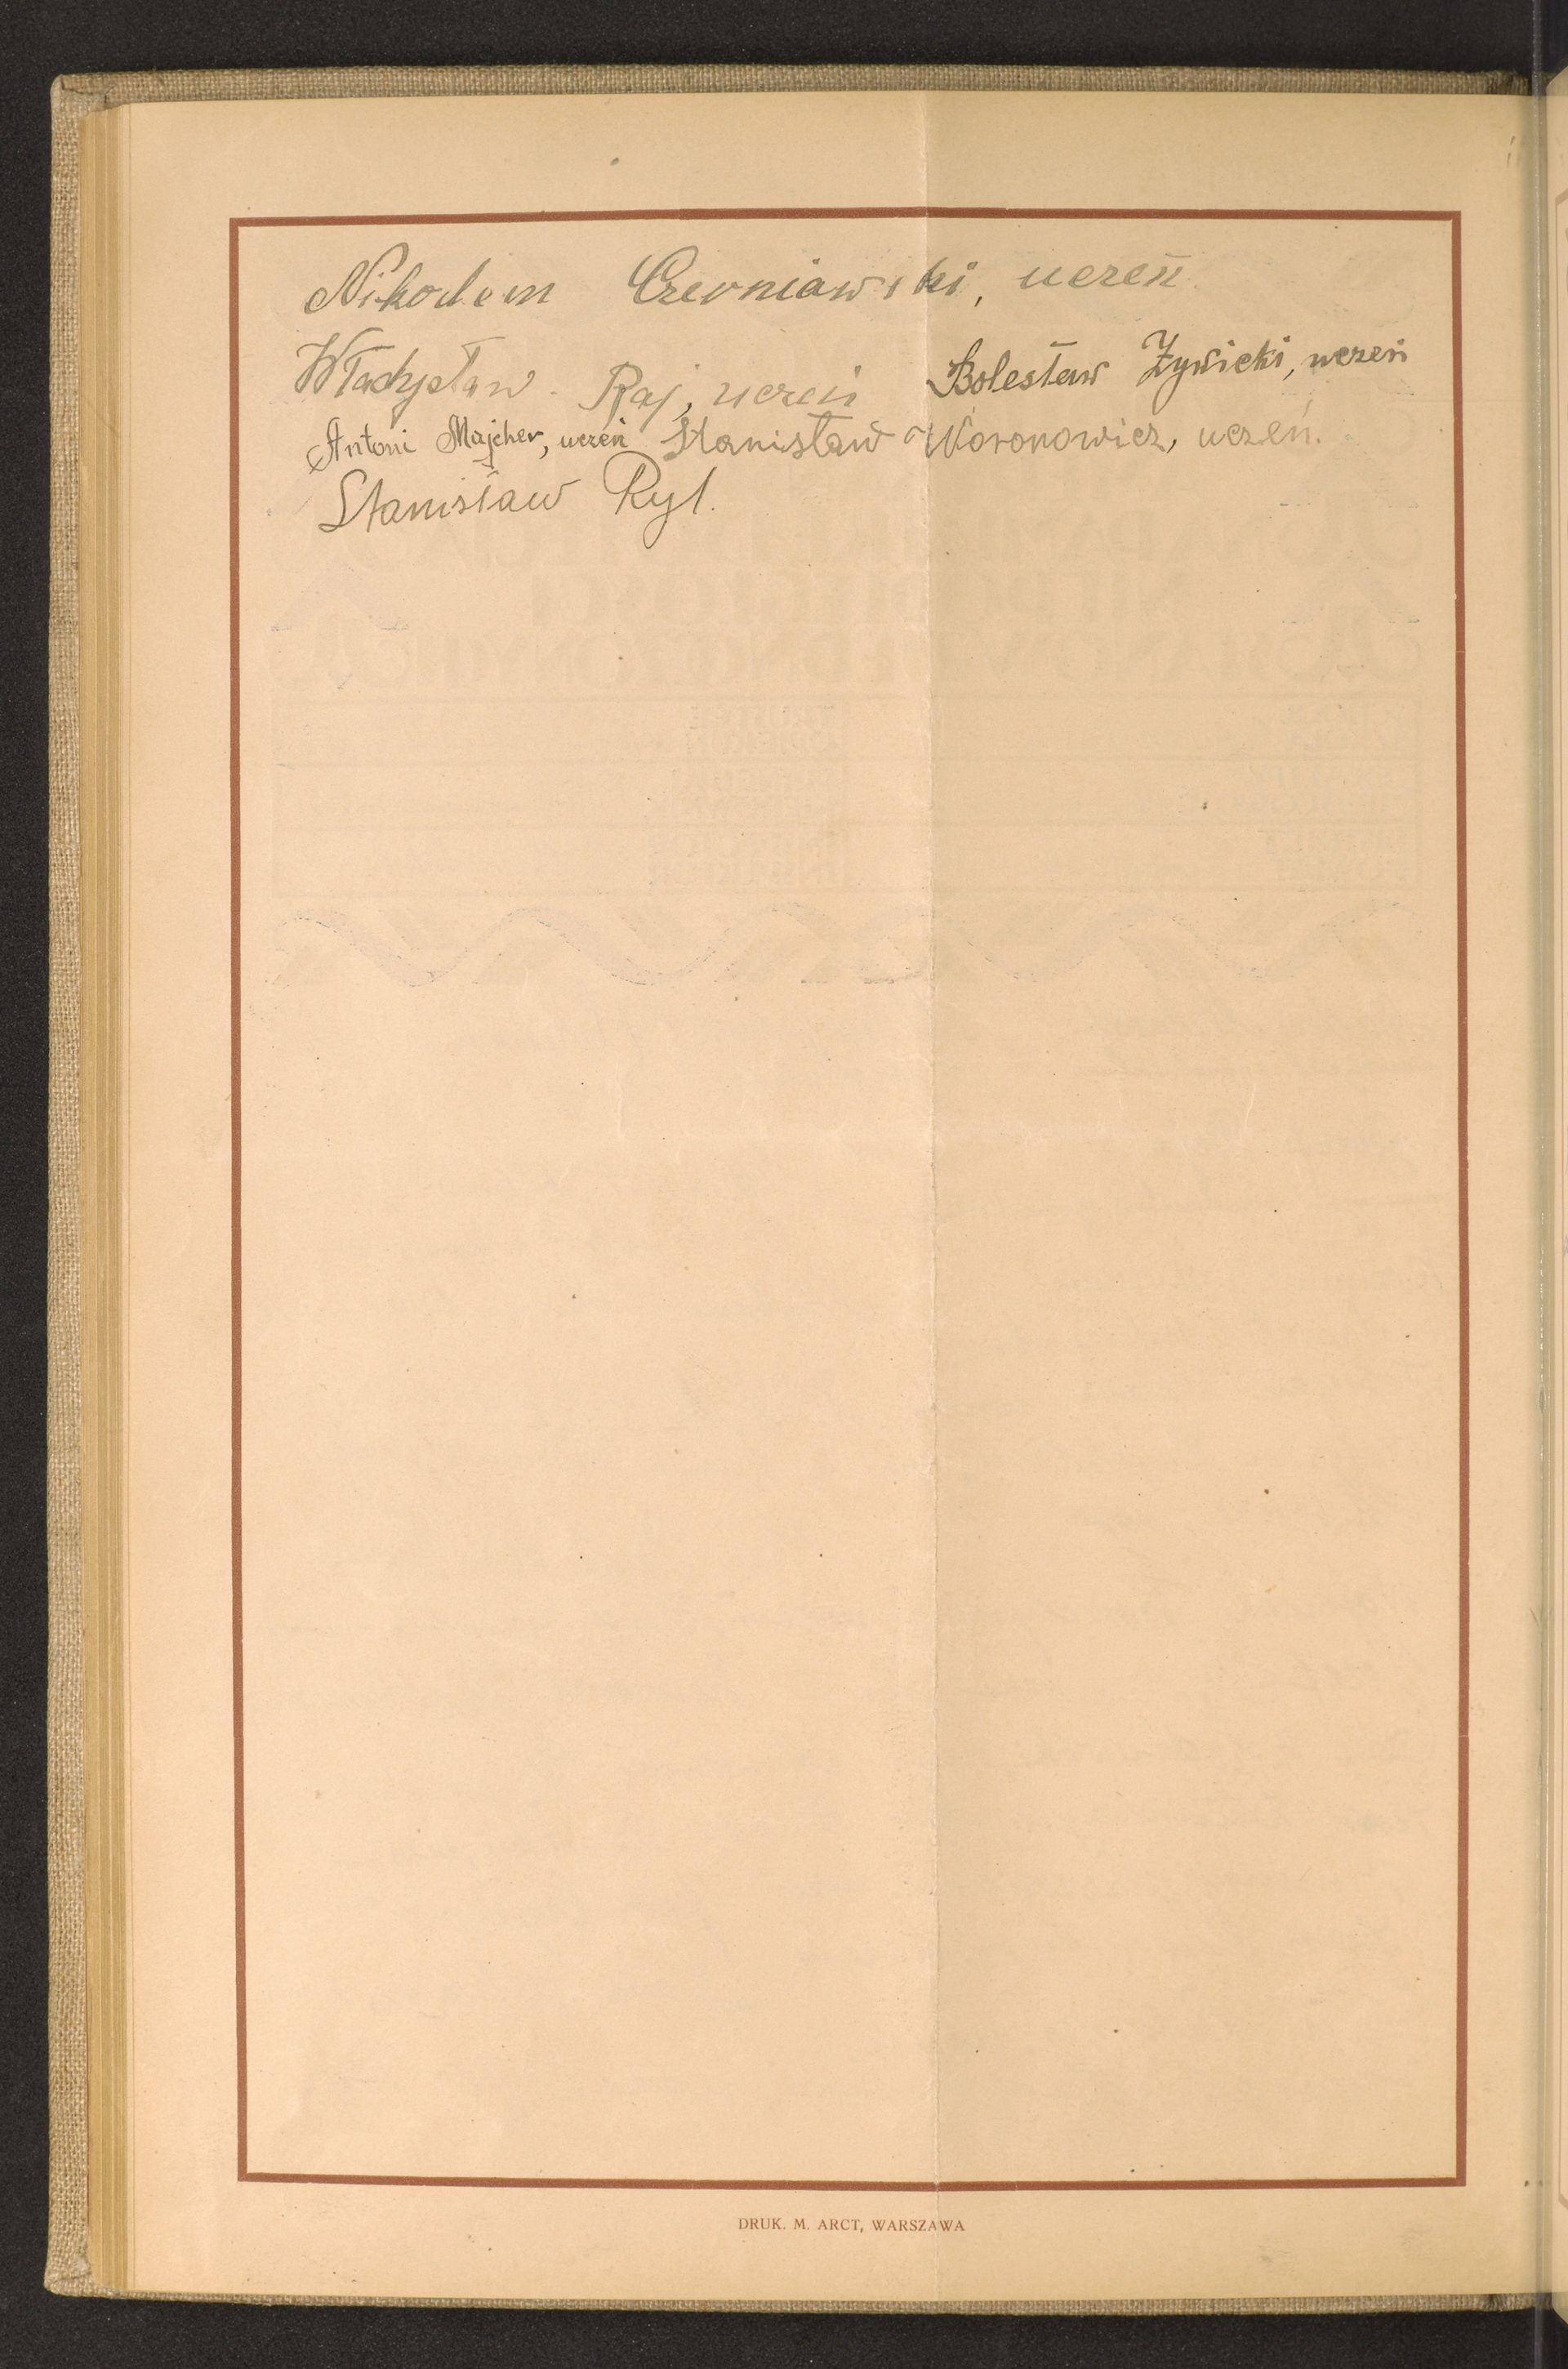 Nikodem Czerniawski, uczeń
Władysław Raj, uczeń Bolesław Żywicki, uczeń
Antoni Majcher, uczeń Stanisław Woronowicz, uczeń.
Stanisław Ryl.
DRUK. M. ARCT, WARSZAWA